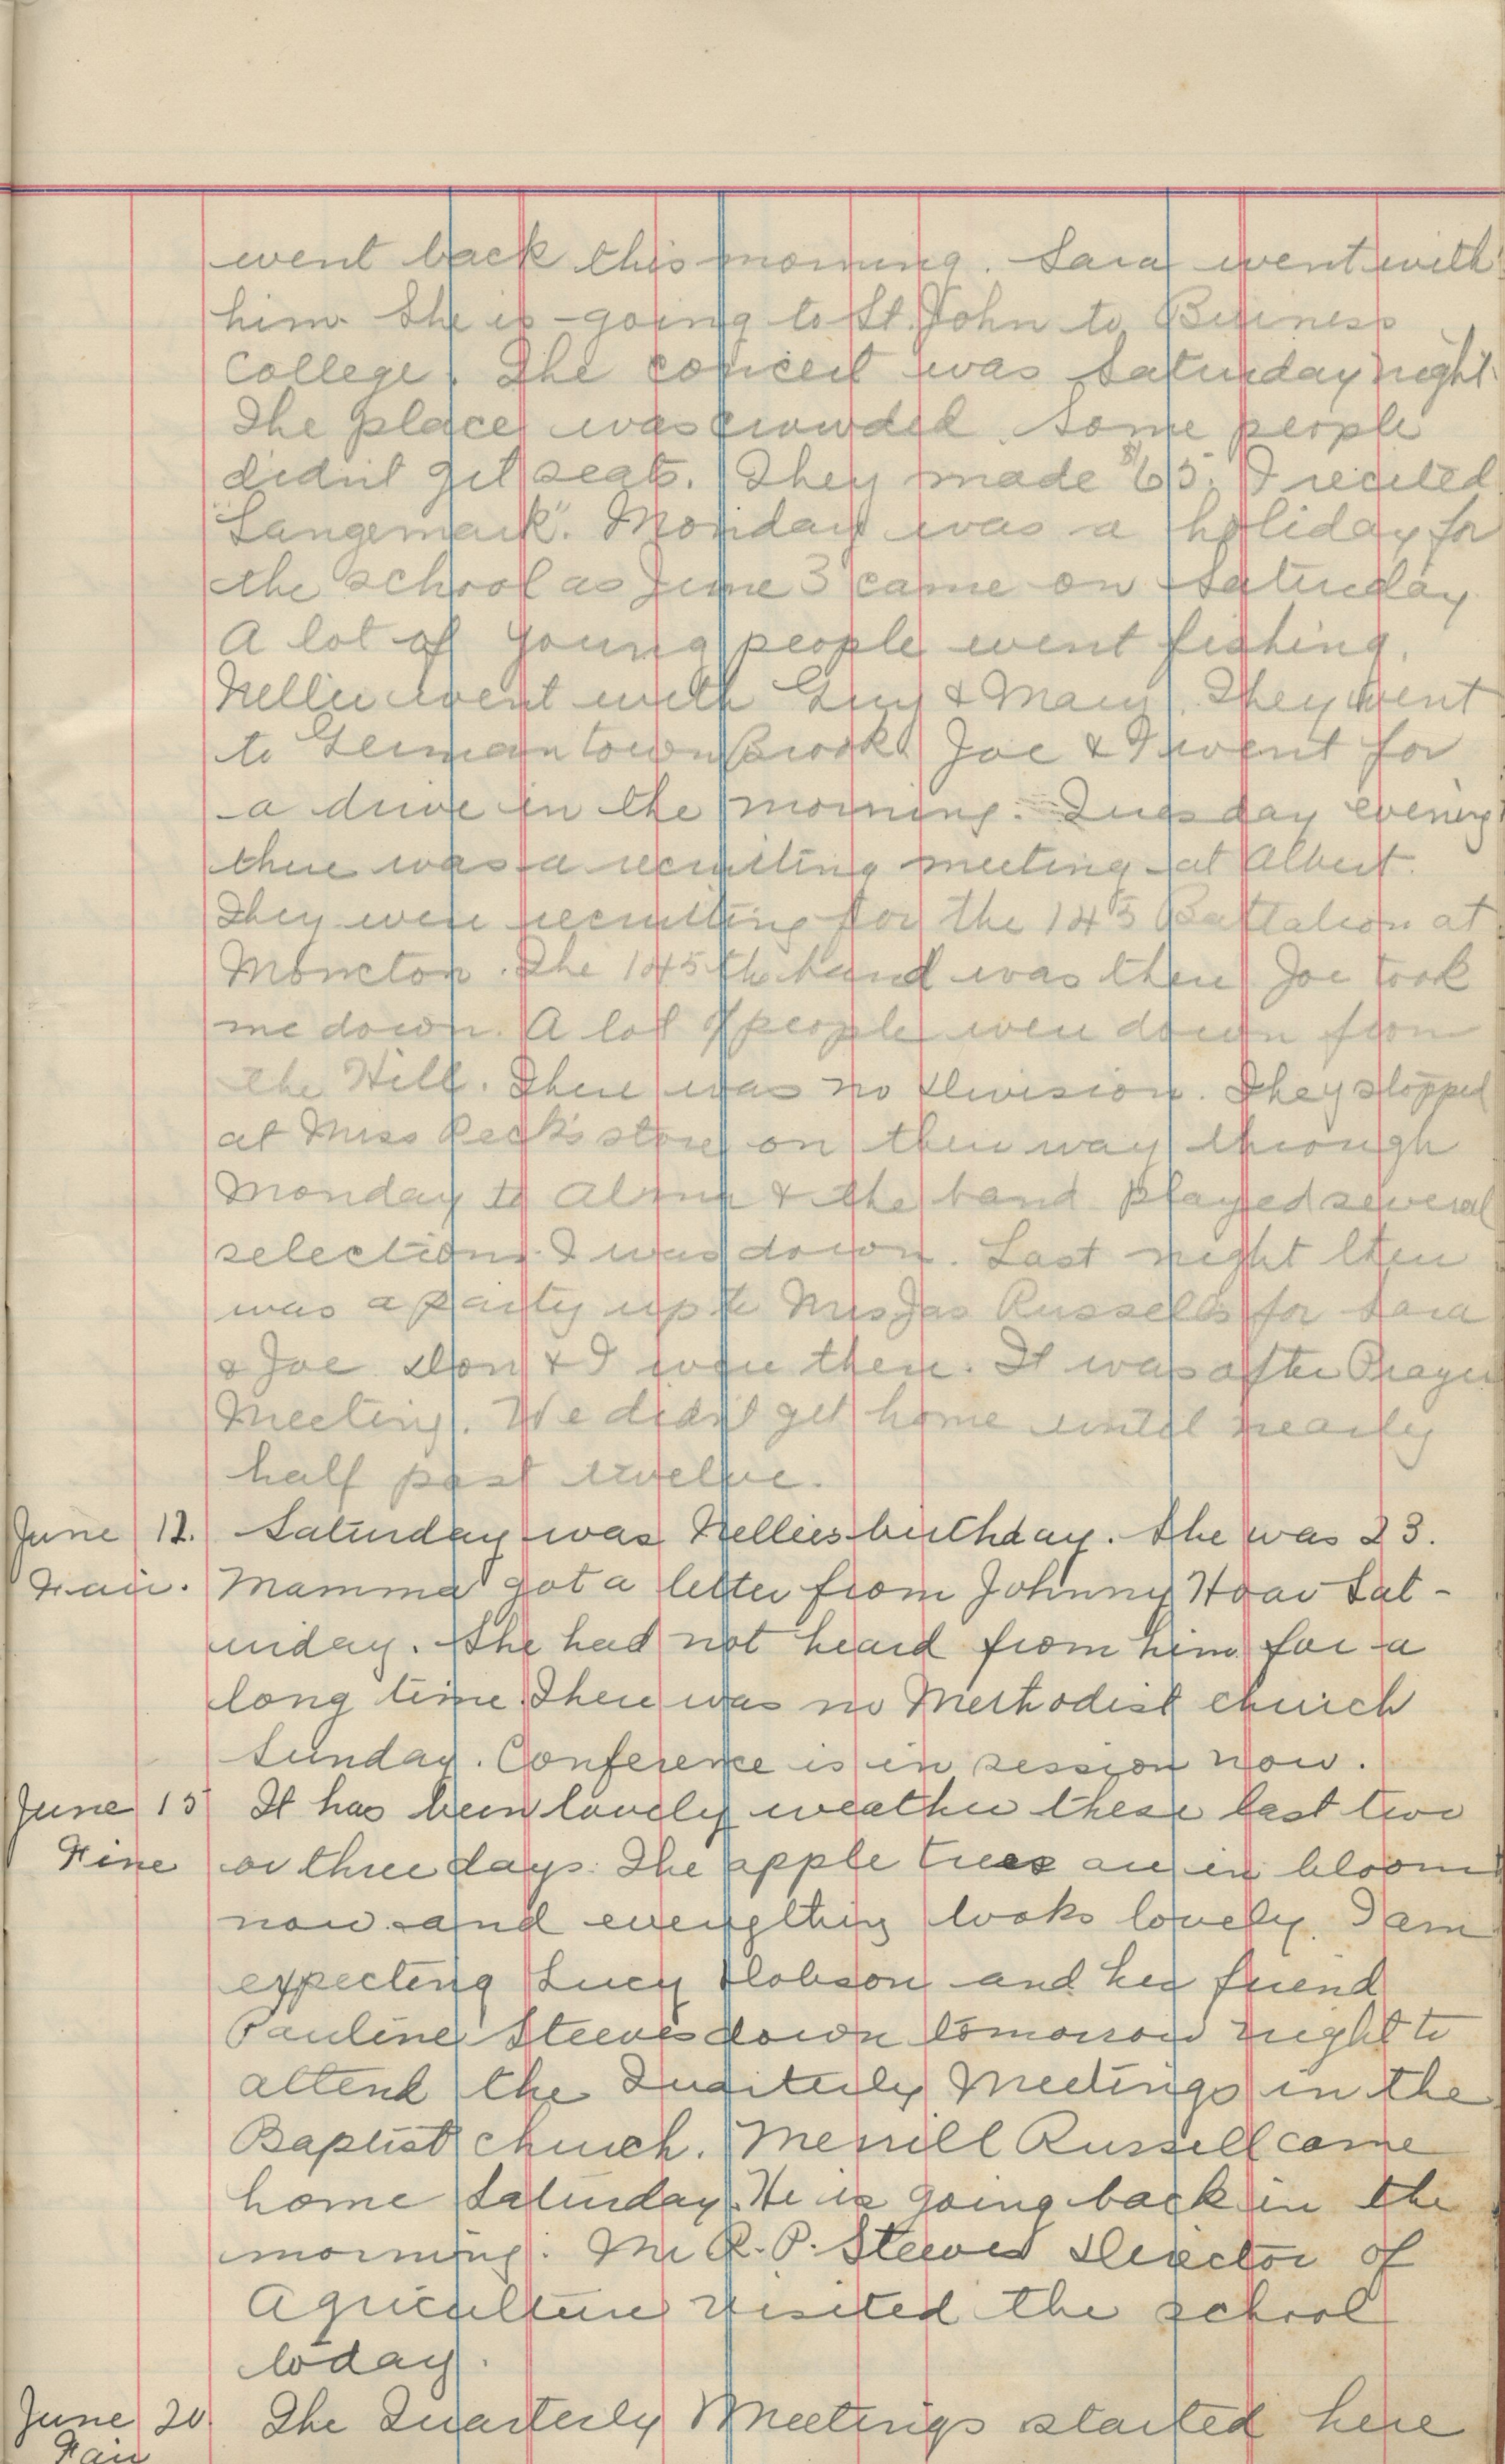 went back this morning. Sara went with
him. She is going to St. John to Business
College. The concert was Saturday night.
The place was crowded. Some people
didn't get seats. They made $65. I recited
"Langemark". Monday was a holiday for
the school as June 3 came on Saturday
A lot of young people went fishing.
Nellie went with Guy & Mary. They went
to Germantown Brook. Joe & I went for
a drive in the morning. Tuesday evening
there was a recruiting meeting at Albert.
They were recruiting for the 145 Battalion at
Moncton. The 145th band was there Joe took
me down. A lot of people were down from
the Hill. There was no Division. They stopped
at Miss Peck's store on their way through
Monday to Alma & the band played several
selections. I was down. Last night there
was a party up to Mrs Jas Russell's for Sara
& Joe Don & I were there. It was after Prayer
Meeting. We didn't get home until nearly
half past twelve.
June 12. Saturday was Nellies birthday. She was 23.
Fair. Mamma got a letter from Johnny Hoar Sat-
urday. She had not heard from him for a
long time. There was no Methodist church
Sunday. Conference is in session now.
June 15 It has been lovely weather these last two
Fine or three days. The apple trees are in bloom
now and everything looks lovely. I am
expecting Lucy Dobson and her friend
Pauline Steeves down tomorrow night to
attend the Quarterly Meetings in the
Baptist church. Merrill Russell came
home Saturday. He is going back in the
morning. Mr R. P. Steeves Director of
Agriculture visited the school
today.
June 20. The Quarterly Meetings started here
Fair